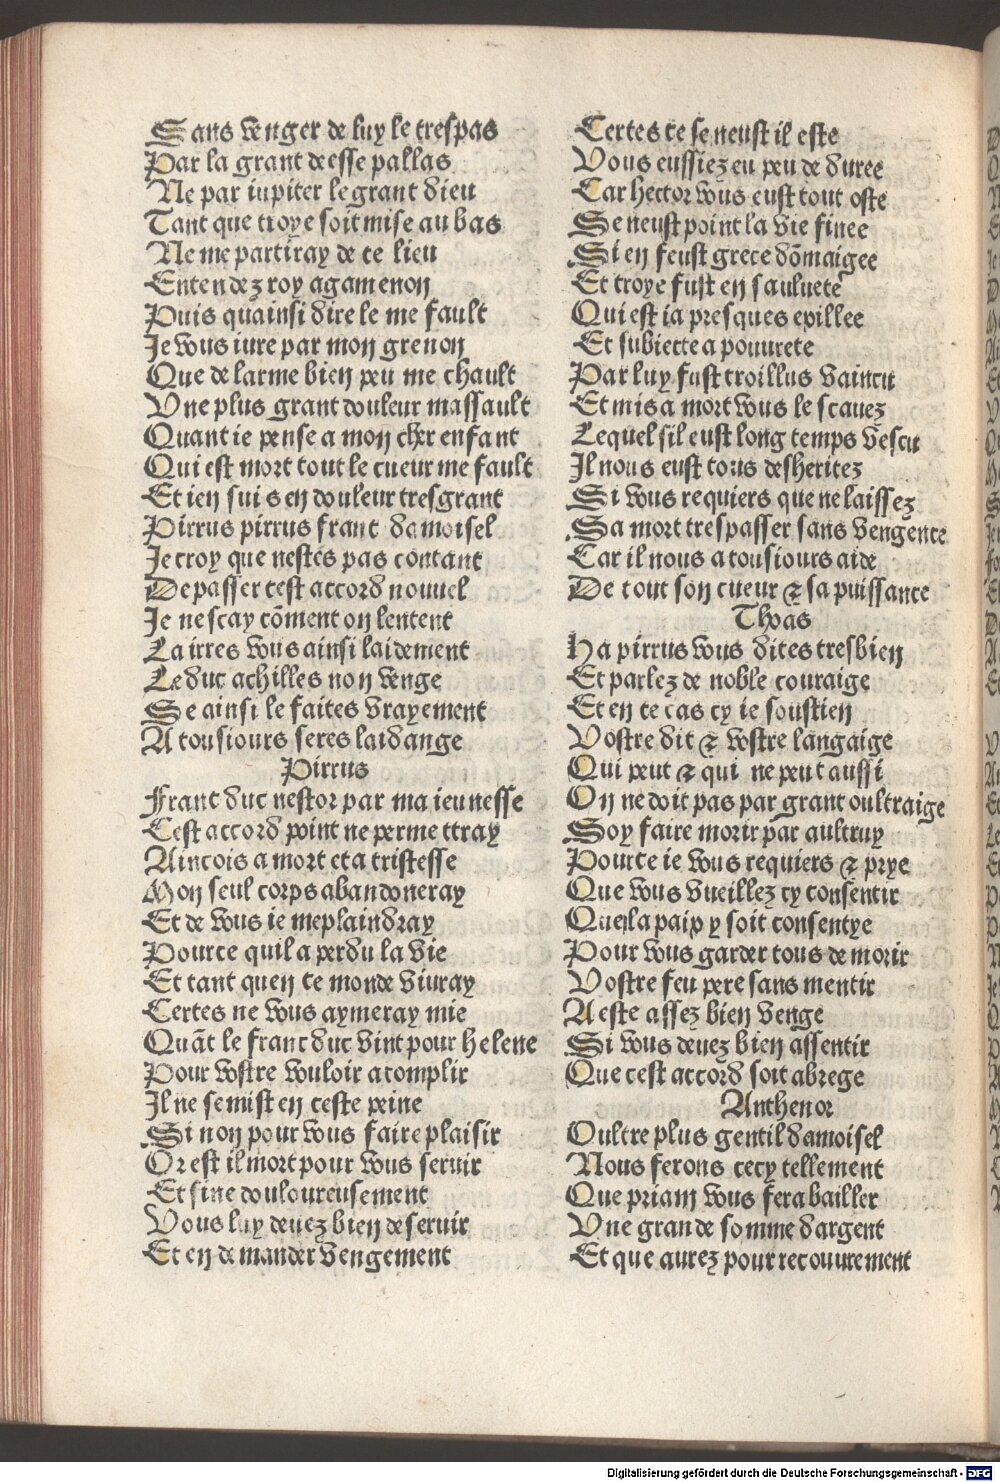 Sans venger de luy le trespas
Par la grant deesse pallas
Ne par iupiter le grant dieu
Tant que troye soit mise au bas
Ne me partiray de ce lieu
Entendez roy agamenon
Puis quainsi dire le me fault
Je vous iure par mon grenon
Que de larme bien peu me chault
Vne plus grant douleur massault
Quant ie pense a mon cher enfant
Qui est mort tout le cueur me fault
Et ien suis en douleur tresgrant
Pirrus pirrus franc damoisel
Je croy que nestes pas contant
De passer cest accord nouuel
Je ne scay cōment on lentent
Lairres vous ainsi laidement
Le duc achilles non venge
Se ainsi le faites vrayement
A tousiours seres laidange
Pirrus
Franc duc nestor par ma ieunesse
Cest accord point ne permettray
Aincois a mort et a tristesse
Mon seul corps abandoneray
Et de vous ie me plaindray
Pource quil a perdu la vie
Et tant quen ce monde viuray
Certes ne vous aymeray mie
Quāt le franc duc vint pour helene
Pour vostre vouloir acomplir
Il ne se mist en ceste peine
Si non pour vous faire plaisir
Or est il mort pour vous seruir
Et fine douloureusement
Vous luy deuez bien deseruir
Et en demander vengement
Certes ce se neust il este
Vous eussiez eu peu de duree
Car hector vous eust tout oste
Se neust point la vie finee
Si en feust grece dōmaigee
Et troye fust en sauluete
Qui est ia presques epillee
Et subiecte a pouurete
Par luy fust troillus vaincu
Et mis a mort vous le scauez
Lequel sil eust long temps vescu
Il nous eust tous desheritez
Si vous requiers que ne laissez
Sa mort trespasser sans vengence
Car il nous a tousiours aide
De tout son cueur ⁊ sa puissance
Thoas
Ha pirrus vous dites tresbien
Et parlez de noble couraige
Et en ce cas cy ie soustien
Vostre dit ⁊ vostre langaige
Qui peut ⁊ qui ne peut aussi
On ne doit pas par grant oultraige
Soy faire morir par aultruy
Pource ie vous requiers ⁊ prye
Que vous vueillez cy consentir
Que la paix y soit consentye
Pour vous garder tous de morir
Vostre feu pere sans mentir
A este assez bien venge
Si vous deuez bien assentir
Que cest accord soit abrege
Anthenor
Oultre plus gentil damoisel
Nous ferons cecy tellement
Que priam vous fera bailler
Vne grande somme dargent
Et que aurez pour recouurement
Digitalisierung gefördert durch die Deutsche Forschungsgemeinschaft - DFG